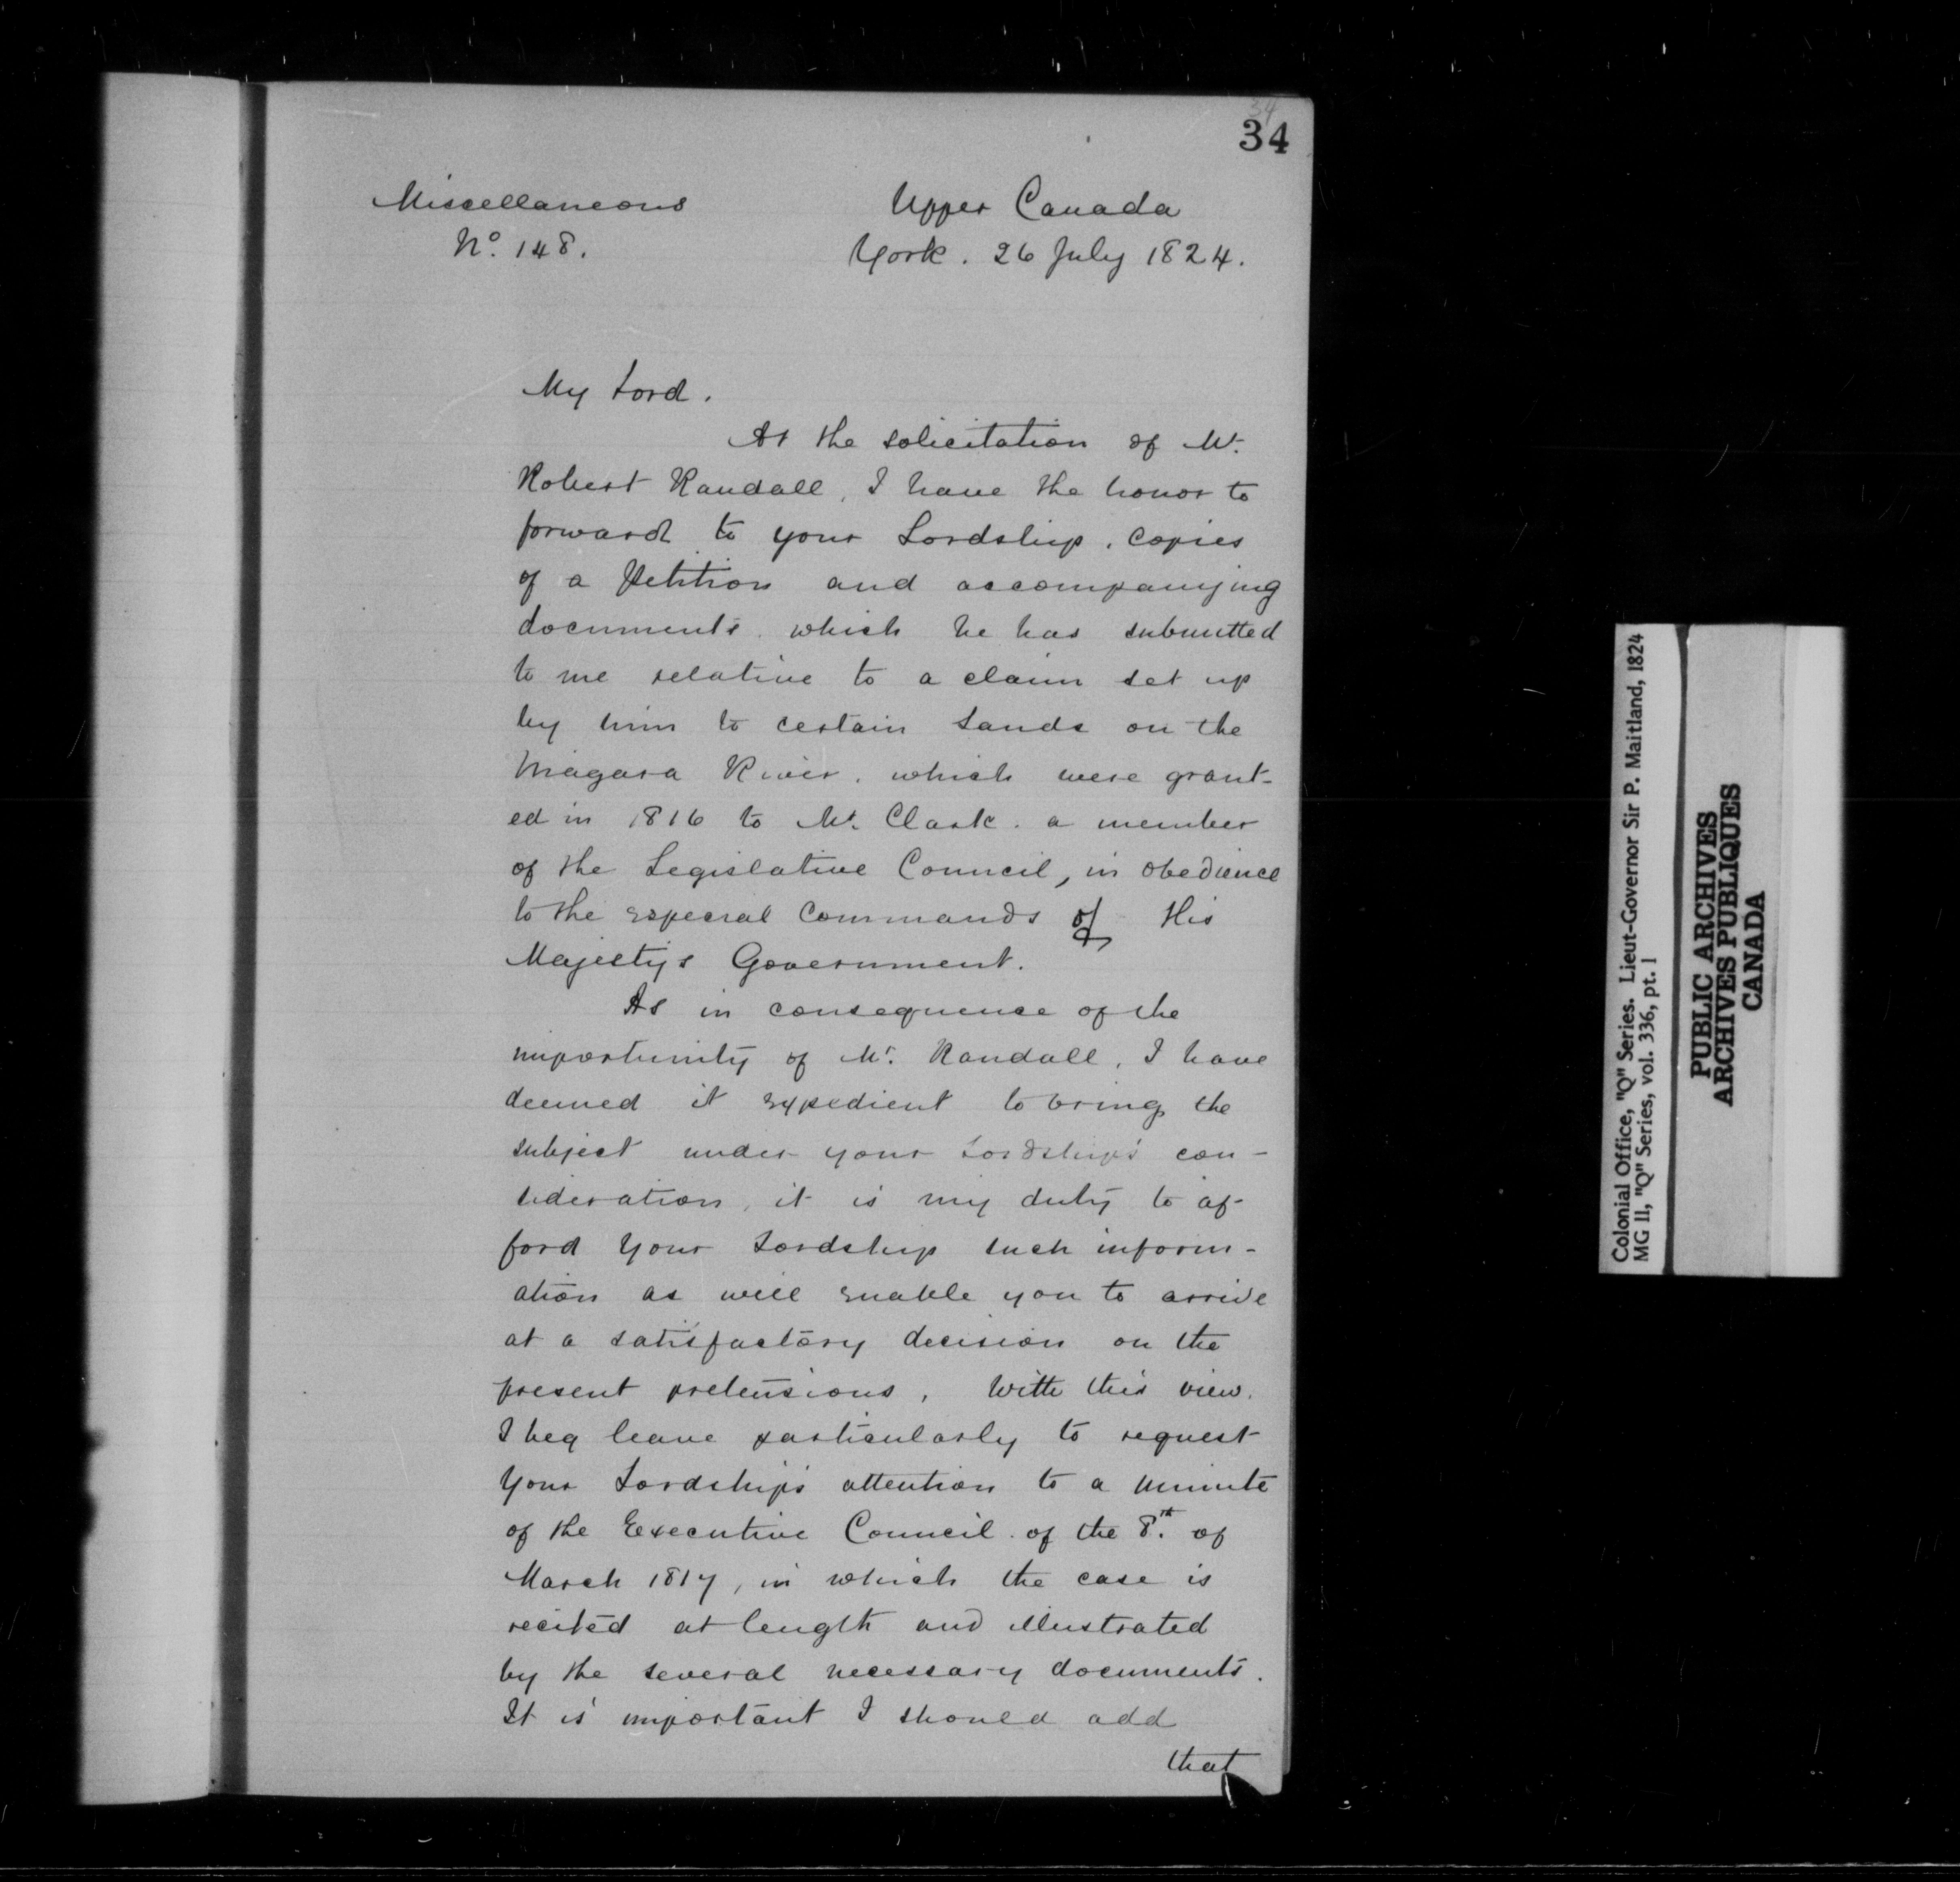 34
34
Miscellaneous
No. 148.
Upper Canada
York. 26 July 1824.
My Lord.
At the solicitation of Mr.
Robert Randall, I have the honor to
forward to your Lordship, copies
of a Petition and accompanying
documents, which he has submitted
to me relative to a claim set up
by him to certain Lands on the
Niagara River, which were grant-
ed in 1816 to Mr. Clark, a member
of the Legislative Council, in obedience
to the especial Commands of His
Majesty's Government.
As in consequence of the
importunity of Mr. Randall, I have
deemed it expedient to bring the
subject under your Lordship's con-
sideration, it is my duty to af-
ford Your Lordship such inform-
ation as will enable you to arrive
at a satisfactory decision on the
present pretensions, With this view,
I beg leave particularly to request
Your Lordship's attention to a Minute
of the Executive Council of the 8th. of
March 1817, in which the case is
recited at length and illustrated
by the several necessary documents.
It is important I should add
that
Colonial Office, "Q" Series. Lieut-Governor Sir P. Maitland, 1824
MG 11, "Q" Series, vol. 336, pt. 1
PUBLIC ARCHIVES
ARCHIVES PUBLIQUES
CANADA